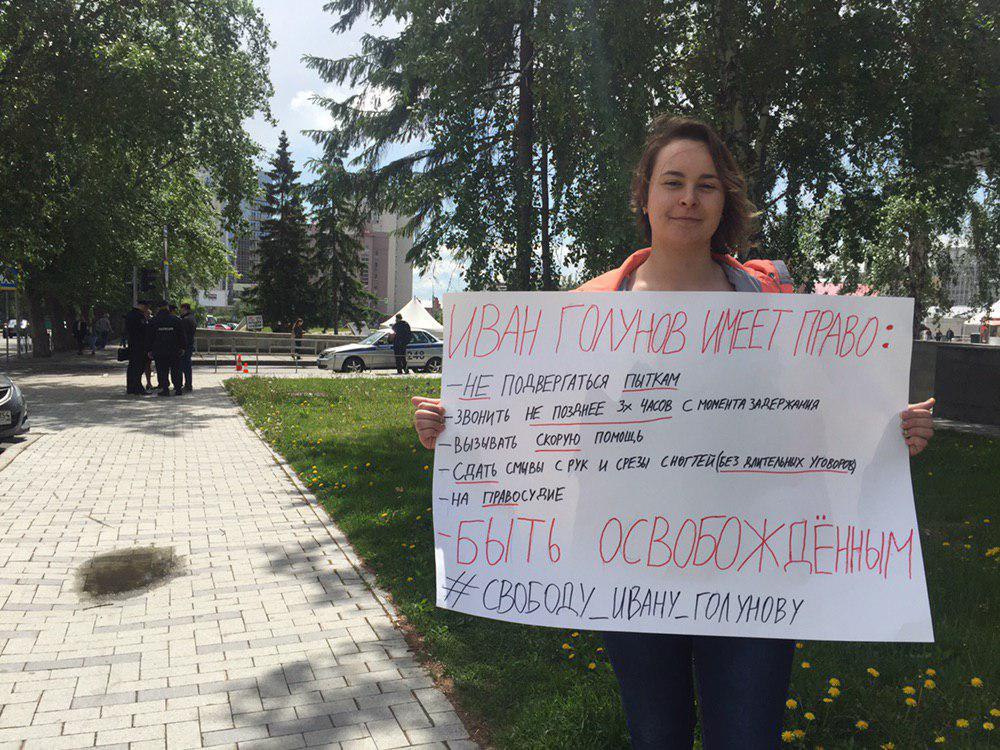 ИВАН ГОЛУНОВ ИМЕЕТ ПРАВО:
- НЕ ПОДВЕРГАТЬСЯ ПЫТКАМ
- ЗВОНИТЬ НЕ ПОЗДНЕЕ 3х ЧАСОВ С МОМЕНТА ЗАДЕРЖАНИЯ
- ВЫЗЫВАТЬ СКОРУЮ ПОМОЩЬ
- СДАТЬ СМЫВЫ С РУК И СРЕЗЫ С НОГТЕЙ (БЕЗ ДЛИТЕЛЬНЫХ УГОВОРОВ)
- НА ПРАВОСУДИЕ
- БЫТЬ ОСВОБОЖДЁННЫМ
#СВОБОДУ_ИВАНУ_ГОЛУНОВУ